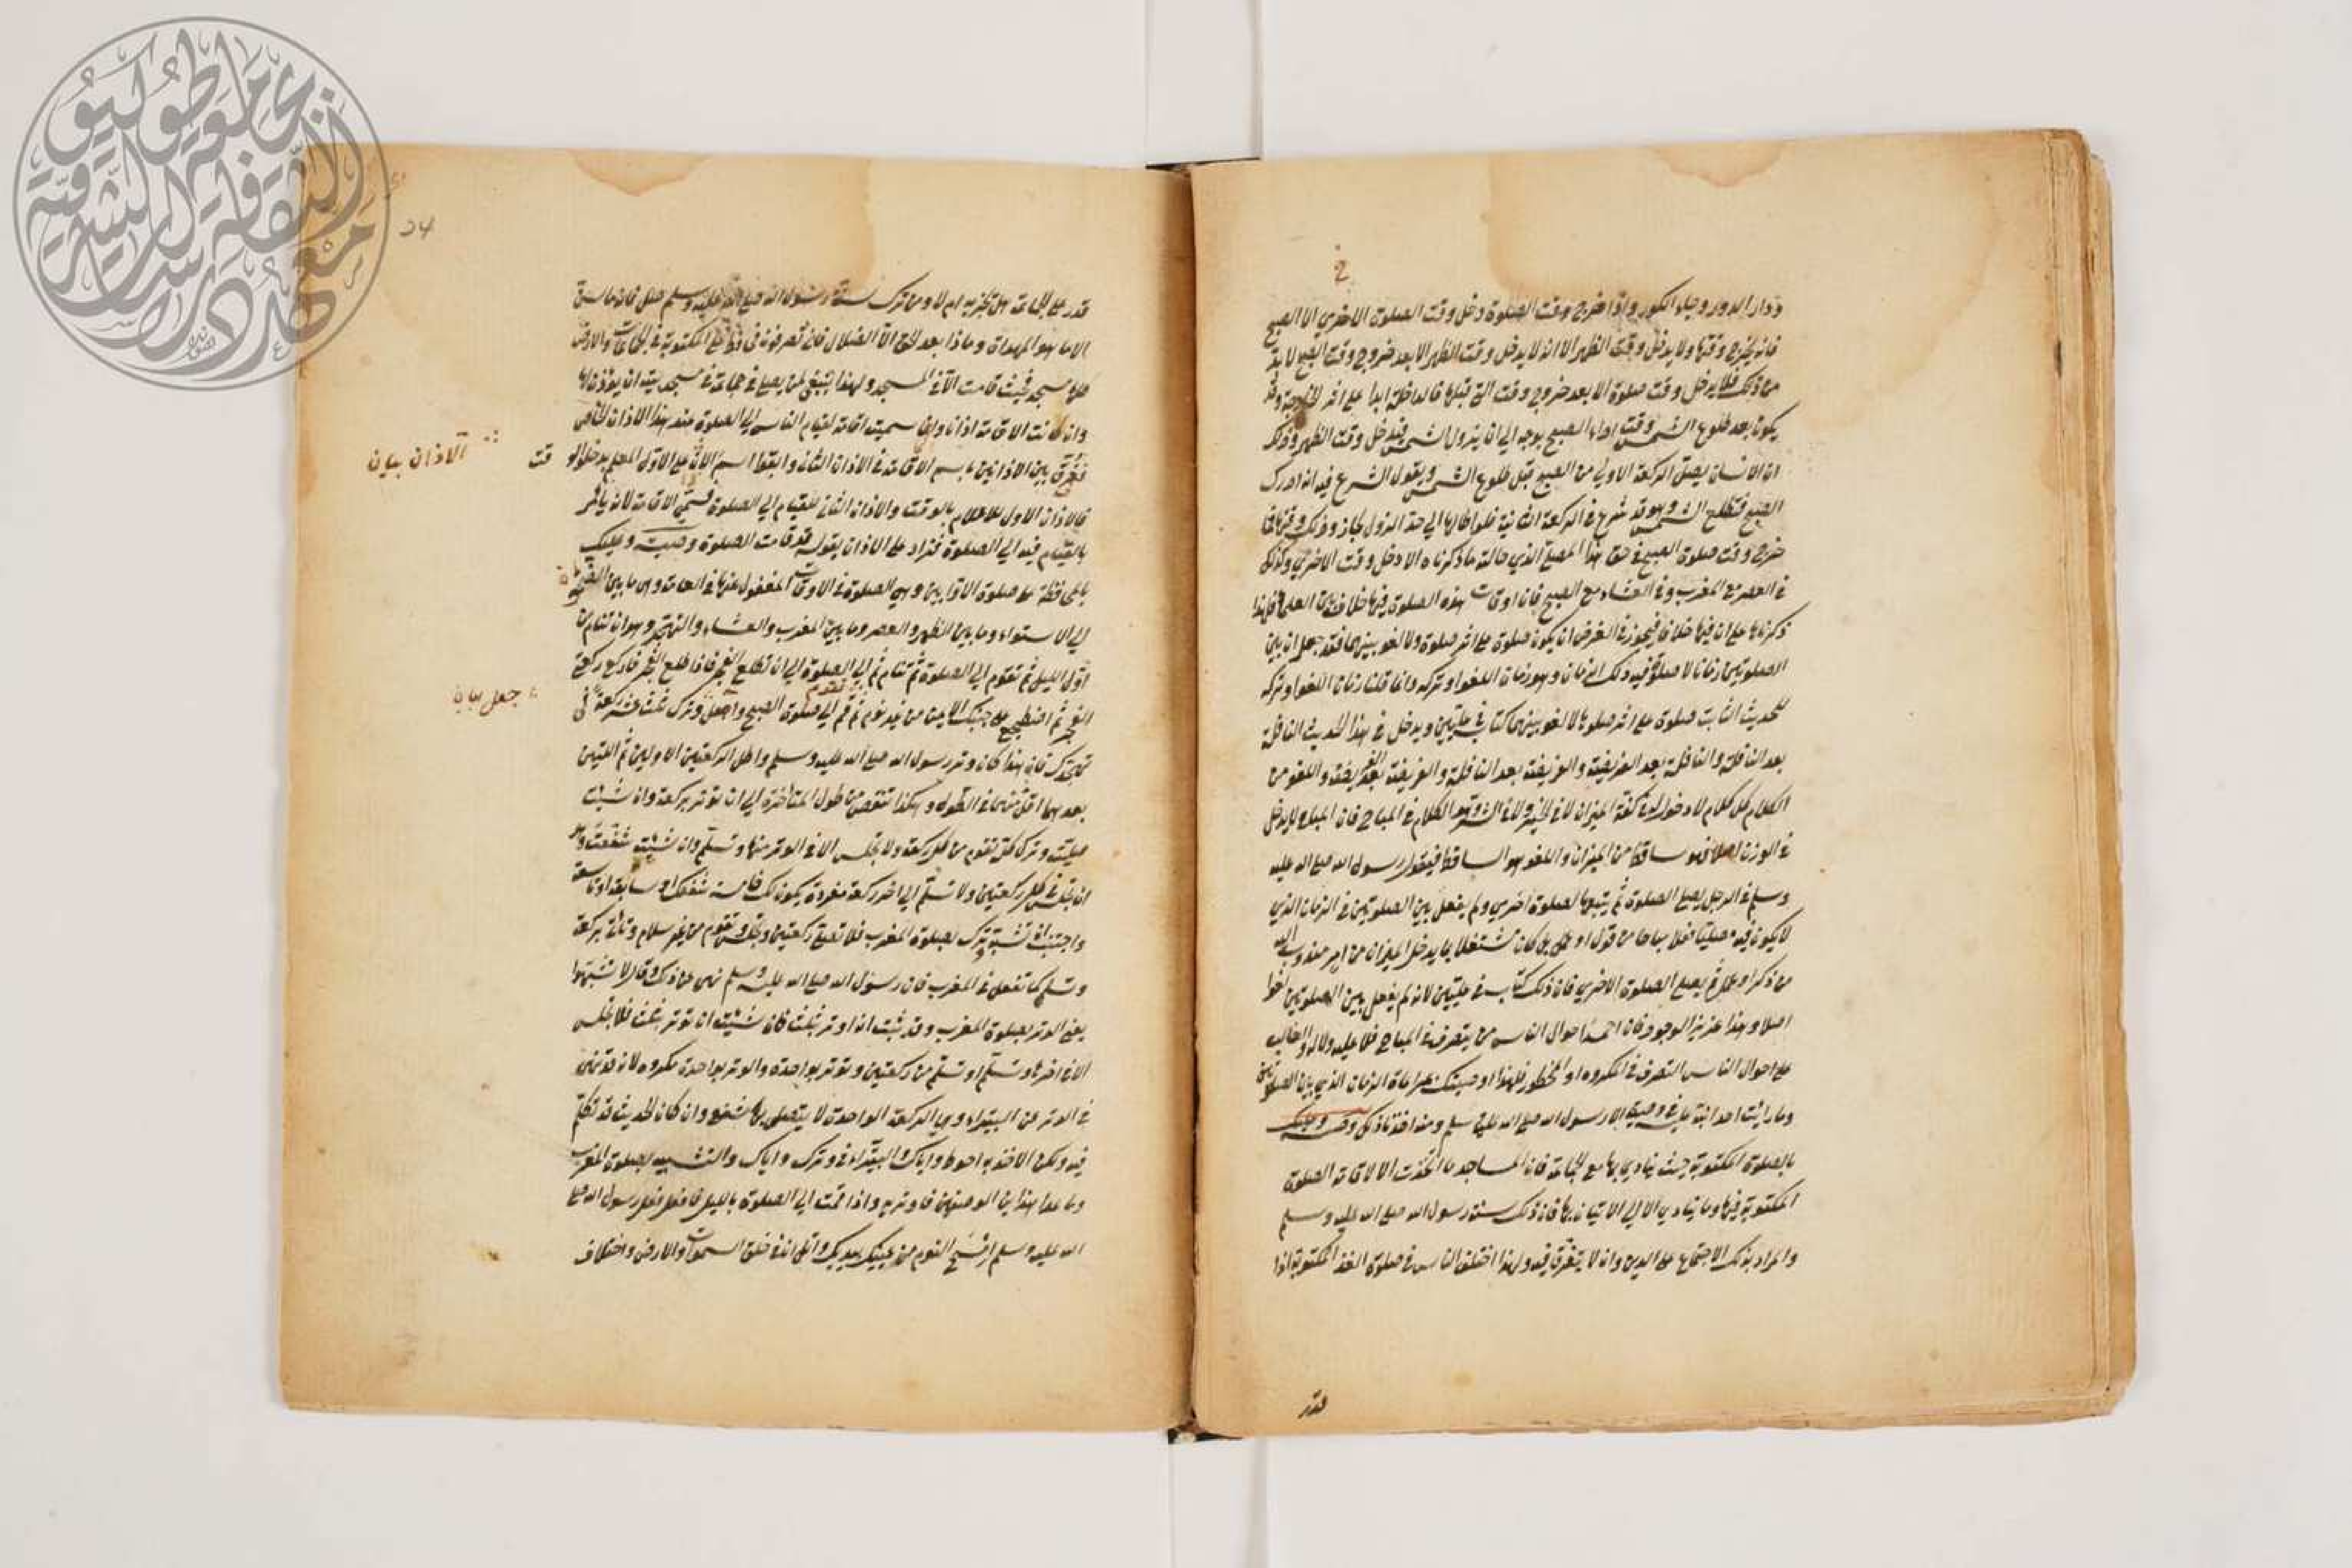 ودار الدور وجاء الكور واذا خرج وقت الصلوة دخل وقت الصلوة الاخرى الا الصبح
فانه يخرج وقتها ولا يدخل وقت الظهر الا انه لا يدخل وقت الظهر الا بعد خروج وقت الصبح لا بد
من ذلك فلا يدخل وقت صلوة الا بعد خروج وقت التي قبلها فالداخلة ابدا على اثر الخارجة وقد
يكون بعد طلوع الشمس وقت اداء الصبح بوجه الى ان يزول الشمس فيدخل وقت الظهر وذلك
ان الانسان يصلى الركعة الاولى من الصبح قبل طلوع الشمس ويقول الشرع فيه انه ادرك
الصبح فتطلع الشمس وهو قد شرع في الركعة الثانية فلو اطالها الى حد الزوال لجاز وذلك وقتها فما
خرج وقت صلوة الصبح في حق هذا المصلى الذي حالته ما ذكرناه الا ودخل وقت الاخرى وكذلك
في العصر مع المغرب وفي العشاء مع الصبح فان اوقات هذه الصلوة فيها خلاف بين العلماء فلهذا
ذكرناها على ان فيها خلافا فيجوز في الغرض ان يكون صلوة على اثر صلوة ولا لغو بينهما فقد جعل ان بين
الصلوتين زمانا لا صلوة فيه وذلك الزمان وهو زمان اللغو او تركه وانما قلنا زمان اللغو او تركه
للحديث الثابت صلوة على اثر صلوة لا لغو بينهما كتاب في عليين ويدخل في هذا الحديث النافلة
بعد النافلة والنافلة بعد الفريضة والفريضة بعد النافلة والفريضة بعد الفريضة واللغو من
الكلام كل كلام لا دخول له في كفة الميزان لا في الخير ولا في الشر وهو الكلام في المباح فان المباح لا يدخل
في الوزن اصلا فهو ساقط من الميزان واللغو هو الساقط فيقول رسول الله صلى الله عليه
وسلم في الرجل يصلى الصلوة ثم يتبعها لصلوة اخرى ولم يفعل بين الصلوتين في الزمان الذي
لا يكون فيه مصليا فعلا مباحا من قول او عمل بل كان مشتغلا بما يدخل الميزان من امر مندوب اليه
من ذكر او عمل ثم يصلى الصلوة الاخرى فان ذلك كتاب في عليين لانه لم يفعل بين الصلوتين لغوا
اصلا وهذا عزيز الوجود فان احمد احوال الناس من يتصرف في المباح فلا عليه ولا له والغالب
على احوال الناس التصرف في المكروه او المحظور فلهذا اوصيتك بمراعاة الزمان الذي بين الصلوتين
وما رايت احدا نبه عليه في وصية الا رسول الله صلى الله عليه وسلم ومنه اخذناه ذلك وصية وعليك
بالصلوة المكتوبة حيث ينادى بها مع الجماعة فان المساجد ما اتخذت الا لاقامة الصلوة
المكتوبة فيها وما ينادى الا الى الاتيان بها فان ذلك سنة رسول الله صلى الله عليه وسلم
والمراد بذلك الاجتماع على الدين وان لا يتفرق فيه ولهذا اختلف الناس في صلوة الفذ المكتوبة اذا
قدر
24
قدر على الجماعة هل تجزيه ام لا ومن ترك سنة رسول الله صلى الله عليه وسلم ضل فانه ما سن
الا ما هو المهداة وماذا بعد الحق الا الضلال فانى تصرفون
كلها مسجد فحيث قامت الا في المسجد ولهذا ينبغي لمن يصلى في جماعة في مسجد بيته ان يؤذن لها
وان كانت الاقامة اذانا وانما سميت اقامة لقيام الناس الى الصلوة عند هذا الاذان الخاص
ففرق بين الاذانين باسم الاقامة في الاذان الثاني وابقوا اسم الاذان على الاول المعلم بدخول الوقت
الاذان بيان
فالاذان الاول للاعلام بالوقت والاذان الثاني للقيام الى الصلوة فسمى الاقامة لانه يامر
بالقيام فيه الى الصلوة فزاد على الاذان بقوله قد قامت الصلوة وصية وعليك
بالمحافظة على صلوة الاوابين وهي الصلوة في الاوقات المغفول عنها في العامة وهي ما بين الضحى
الى الاستواء وما بين الظهر والعصر وما بين المغرب والعشاء والتهجد وهو ان تنام من
اول الليل ثم تقوم الى الصلوة ثم تنام ثم الى الصلوة الى ان تطلع الفجر فاذا طلع الفجر فاركع ركعتي
الفجر ثم اضطجع على جنبك الايمن من غير نوم ثم قم الى صلوة الصبح واجعل وترك ثلث عشرة ركعة في
جعل بيان
تهجدك فان هذا كان وتر رسول الله صلى الله عليه وسلم واطل الركعتين الاوليين ثم اللتين
بعدهما اقل منهما في الطول وهكذا تنقص من طول المتاخرة الى ان توتر بركعة وان شئت
صليت وترك كله تقوم من كل ركعة ولا تجلس الا في الوتر منها وتسلم وان شئت شفعت
ان تجلس في كل ركعتين ولا تسلم الى اخر ركعة مفردة يكون لك خامسة شفعك او سابعة او تاسعة
واجتنب ان تشبه وترك بصلوة المغرب فلا تصلى ركعتين وتجلس وتقوم من غير سلام وتاتي بركعة
وتسلم كما تفعل في المغرب فان رسول الله صلى الله عليه وسلم نهى عن ذلك وقال لا تشبهوا
يعني الوتر بصلوة المغرب وقد ثبت انه اوتر بثلث فان شئت ان توتر بثلث فلا تجلس
الا في اخرها وتسلم او تسلم من ركعتين وتوتر بواحدة والوتر بواحدة مكروه لانه قد نهى
في الوتر عن البتيراء وهي الركعة الواحدة لا يتصل بها شفع وان كان الحديث قد تكلم
فيه ولكن الاخذ به احوط واياك والبتيراء في وترك واياك والتشبيه بصلوة المغرب
وما عدا هذا من الوصفين فاوتر به واذا قمت الى الصلوة بالليل فافعل فعل رسول الله صلى
الله عليه وسلم امسح النوم من عينيك بيديك واتل ان في خلق السموات والارض واختلاف